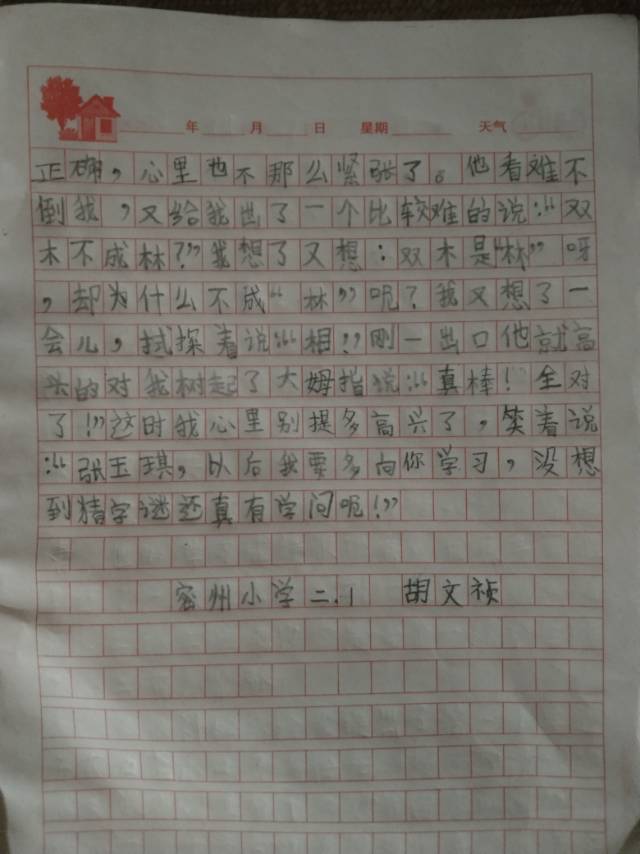 年 月 日 星期 天气
正确，心里也不那么紧张了。他看难不
倒我，又给我出了一个比较难的说：“双
木不成林？”我想了又想：双木是“林”呀
，却为什么不成“林”呢？我又想了一
会儿，拭探着说：“相！”刚一出口他就高
头的对我树起了大姆指说：“真棒！全对
了！”这时我心里别提多高兴了，笑着说
：“张玉琪，以后我要多向你学习，没想
到猜字谜还真有学问呢！”
密州小学二.1 胡文祯